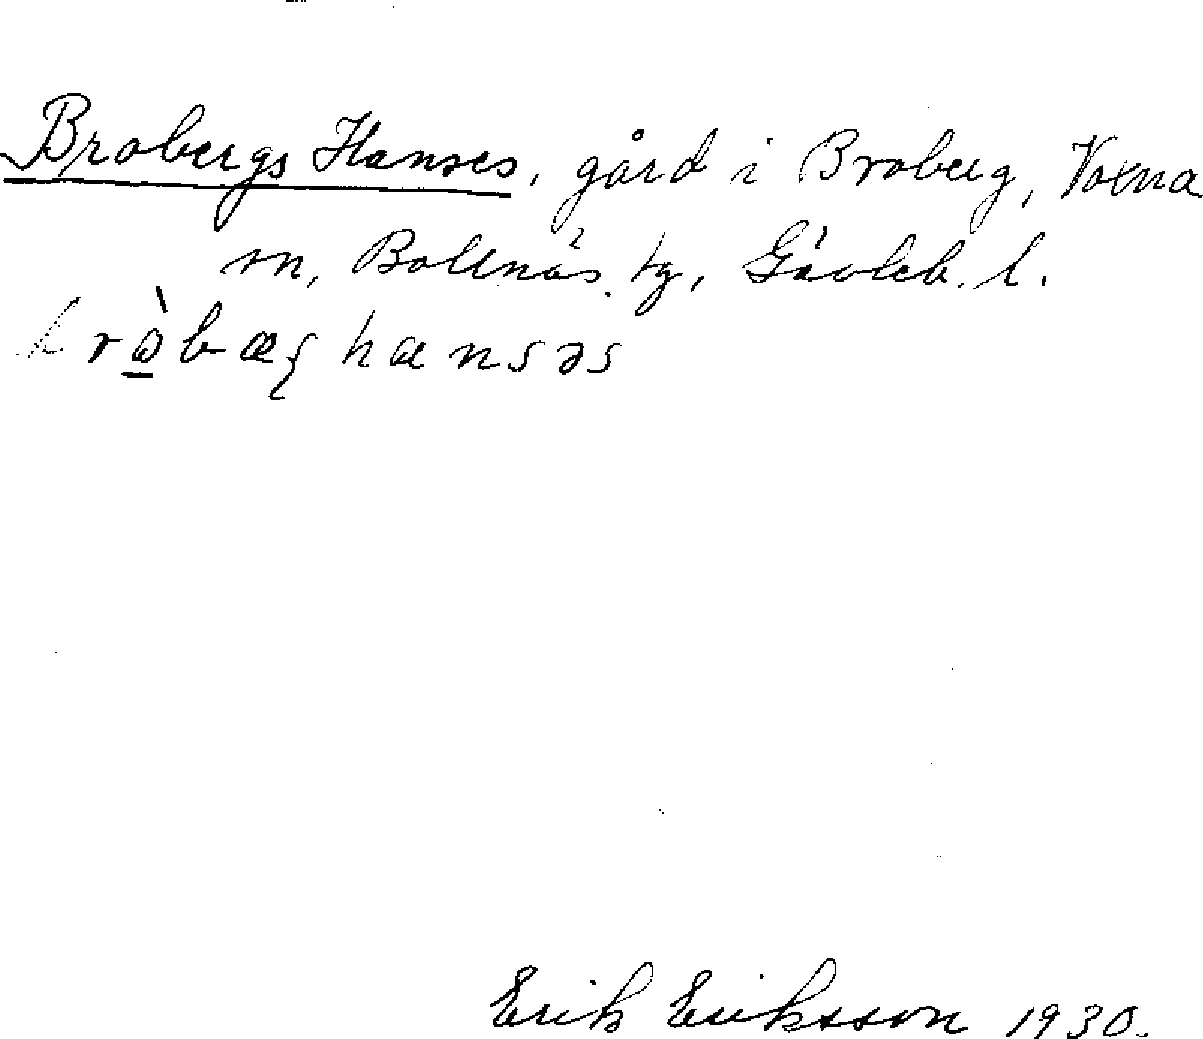 Brobergs Hanses, gård i Broberg, Voxna
sn, Bollnäs tg, Gävleb. l.
hansəs
Erik Eriksson 1930.